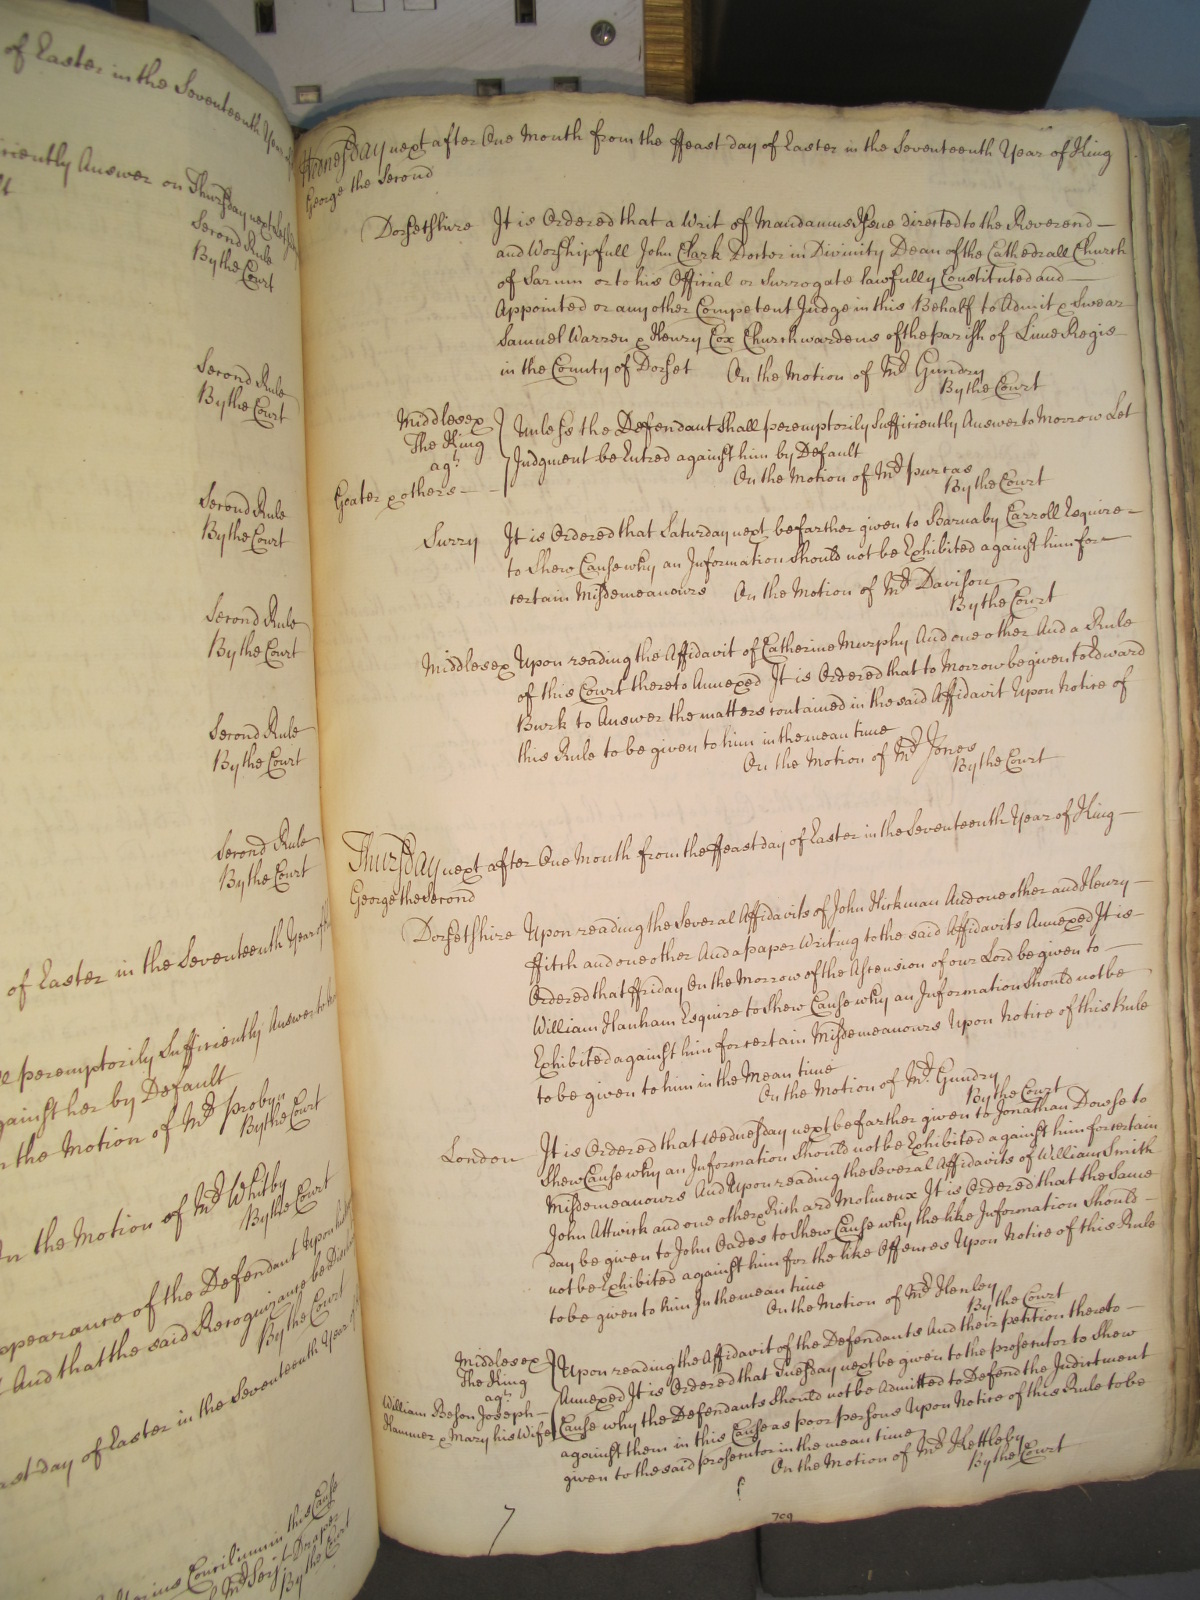 of Easter in the Seventeenth Year
Answer on Thursday next
Second Rule
By the Court
Second Rule
By the Court
Second Rule
By the Court
Second Rule
By the Court
Second Rule
By the Court
Second Rule
By the Court
of Easter in the Seventeenth Year of
peremptorily Sufficiently Answer
against her by Default
the Motion of Mr. Probyn
By the Court
On the Motion of Mr. Whitby
By the Court
appearance of the Defendant upon
And that the said Recognizance be
By the Court
day of Easter in the Seventeenth Year
Concilium in this Cause
Mr. Serjt. Draper
By the Court
Wednesday next after One Month from the ffeast day of Easter in the Seventeenth Year of King
George the Second
Dorsetshire It is Ordered that a Writ of Mandamus Issue directed to the Reverend
and Worshipfull John Clark Doctor in Divinity Dean of the Cathedrall Church
of Sarum or to his Official or Surrogate lawfully Constituted and
Appointed or any other Competent Judge in this Behalf to Admit & Swear
Samuel Warren & Henry Cox Churchwardens of the parish of Lime Regis
in the County of Dorset On the Motion of Mr. Gundry
By the Court
Middlesex
The King
agt.
Goater & others
Unless the Defendant Shall peremptorily Sufficiently Answer to Morrow Let
Judgment be Entred against him by Default
On the Motion of Mr. Purcas
By the Court
Surry It is Ordered that Saturday next be farther given to Barnaby Carroll Esquire
to Shew Cause why an Information Should not be Exhibited against him for
certain Misdemeanours On the Motion of Mr. Davison
By the Court
Middlesex Upon reading the Affidavit of Catherine Murphy And one other And a Rule
of this Court thereto Annexed It is Ordered that to Morrow be given to Edward
Burk to Answer the matters contained in the said Affidavit Upon Notice of
this Rule to be given to him in the mean time
On the Motion of Mr. Jones
By the Court
Thursday next after One Month from the ffeast day of Easter in the Seventeenth Year of King
George the Second
Dorsetshire Upon reading the Several Affidavits of John Kirkman And one other and Henry
ffitch and one other And a paper Writing to the said Affidavits Annexed It is
Ordered that ffriday On the Morrow of the Ascension of our Lord be given to
William Hanham Esquire to Shew Cause why an Information Should not be
Exhibited against him for certain Misdemeanours Upon Notice of this Rule
to be given to him in the Mean time
On the Motion of Mr. Gundry
By the Court
London It is Ordered that Wednesday next be farther given to Jonathan Dowse to
Shew Cause why an Information Should not be Exhibited against him for certain
Misdemeanours And Upon reading the Several Affidavits of William Smith
John Attwick and one other & Richard Molineux It is Ordered that the Same
day be given to John Oades to Shew Cause why the like Information Should
not be Exhibited against him for the like Offences Upon Notice of this Rule
to be given to him In the mean time
On the Motion of Mr. Henley
By the Court
Middlesex
The King
agt.
William Beson Joseph
Hammer & Mary his Wife
Upon reading the Affidavit of the Defendants And their petition thereto
Annexed It is Ordered that Tuesday next be given to the prosecutor to Shew
Cause why the Defendants Should not be Admitted to Defend the Indictment
against them in this Cause as poor persons Upon Notice of this Rule to be
given to the said prosecutor in the mean time
On the Motion of Mr. Kettleby
By the Court
709